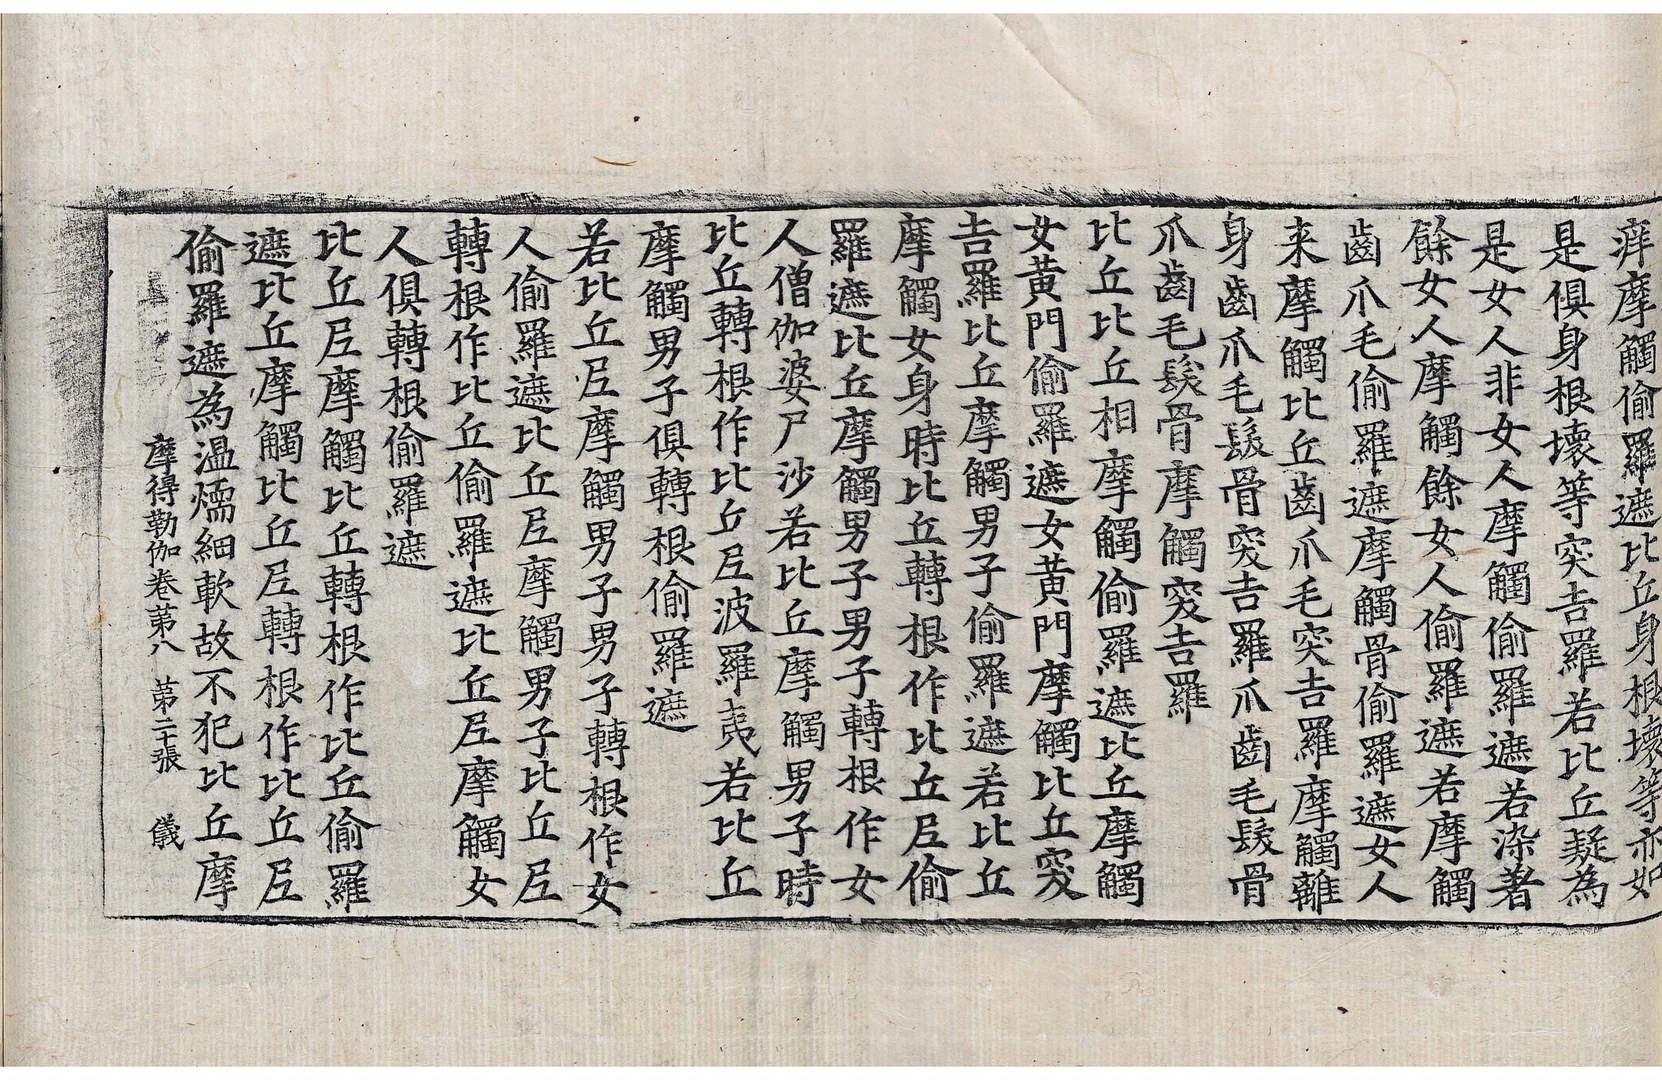 痒摩觸偷羅遮比丘身根壞等亦如
是俱身根壞等突吉羅若比丘疑為
是女人非女人摩觸偷羅遮若染著
餘女人摩觸餘女人偷羅遮若摩觸
齒爪毛偷羅遮摩觸骨偷羅遮女人
来摩觸比丘齒爪毛突吉羅摩觸離
身齒爪毛髮骨突吉羅爪齒毛髮骨
爪齒毛髮骨摩觸突吉羅
比丘比丘相摩觸偷羅遮比丘摩觸
女黃門偷羅遮女黃門摩觸比丘突
吉羅比丘摩觸男子偷羅遮若比丘
摩觸女身時比丘轉根作比丘尼偷
羅遮比丘摩觸男子男子轉根作女
人僧伽婆尸沙若比丘摩觸男子時
比丘轉根作比丘尼波羅夷若比丘
摩觸男子俱轉根偷羅遮
若比丘尼摩觸男子男子轉根作女
人偷羅遮比丘尼摩觸男子比丘尼
轉根作比丘偷羅遮比丘尼摩觸女
人俱轉根偷羅遮
比丘尼摩觸比丘轉根作比丘偷羅
遮比丘摩觸比丘尼轉根作比丘尼
偷羅遮為温煗細軟故不犯比丘摩
摩得勒伽卷苐八 苐二十張 儀